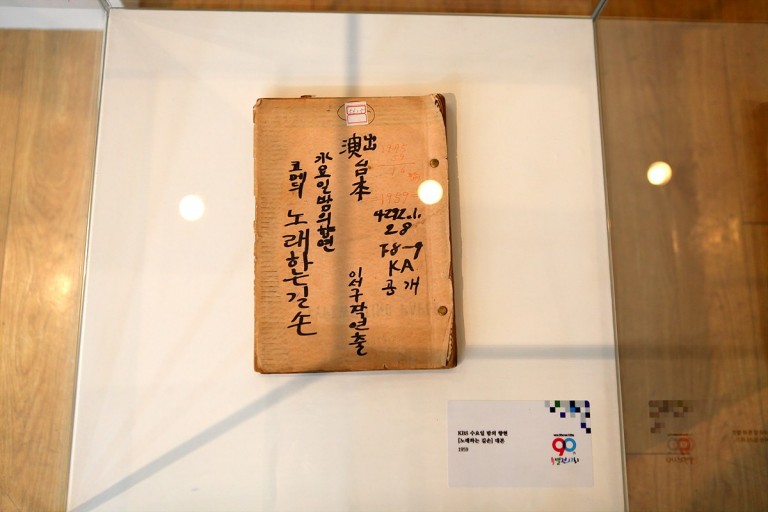 演出
台本
4292.1.
28
7.8-9
KA
공개
이서구작연출
수요일밤의향연
코메디 노래하는길손
KBS 수요일 밤의 향연
[노래하는 길손] 대본
1959
90